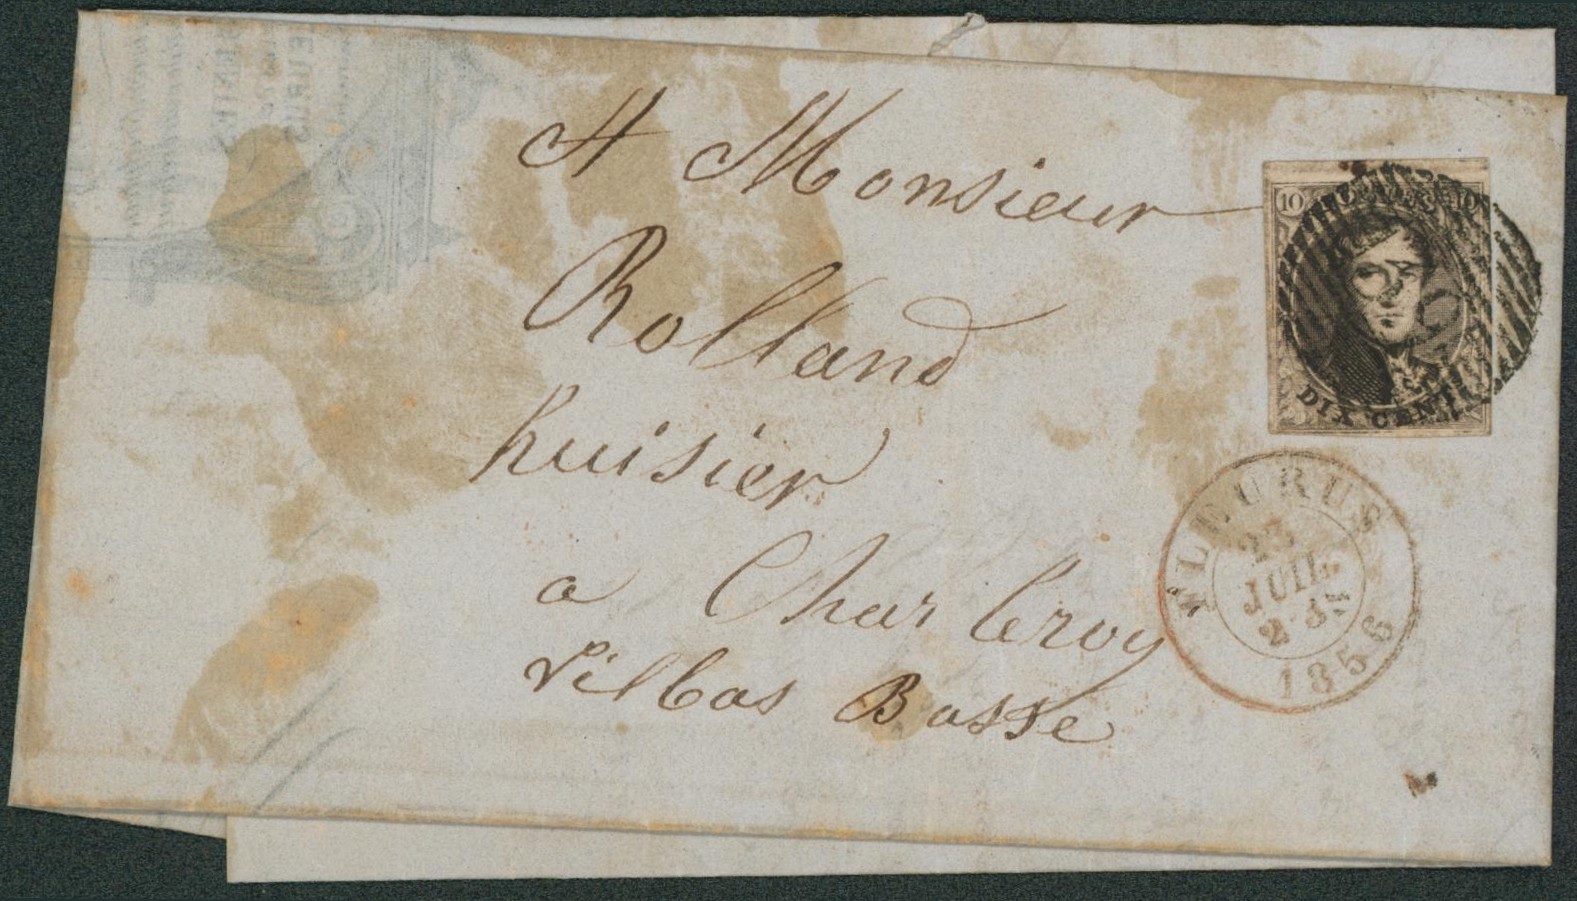 A Monsieur
Rolland
huisier
a Charleroy
vilbas Basse
10 10
DIX CENT
FLEURUS
23
JUIL.
1856